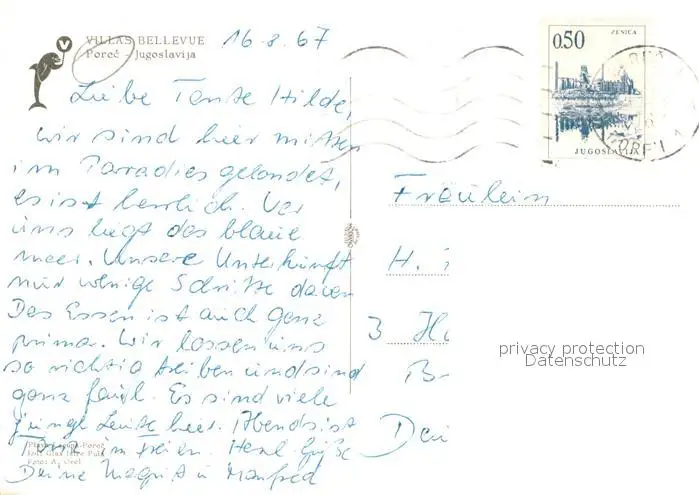 VILLAS BELLEVUE
Poreč - Jugoslavija
16-8.67
Liebe Tante Hilde,
wir sind hier mitten
im Parradies gelandet,
es ist herrlich. Vor
uns liegt das blaue
meer. Unsere Unterkunft
nur wenige Schritte davon
Das Essen ist auch ganz
prima. Wir lassen uns
so richtig treiben und sind
ganz faul. Es sind viele
junge Leute hier. Abends ist
Tanz im Freien. Herzl. Grüße
Deine Magrit u Manfred
Foto: A.
0.50
ZENICA
JUGOSLAVIJA
Fräulein
H.
3
privacy protection
Datenschutz